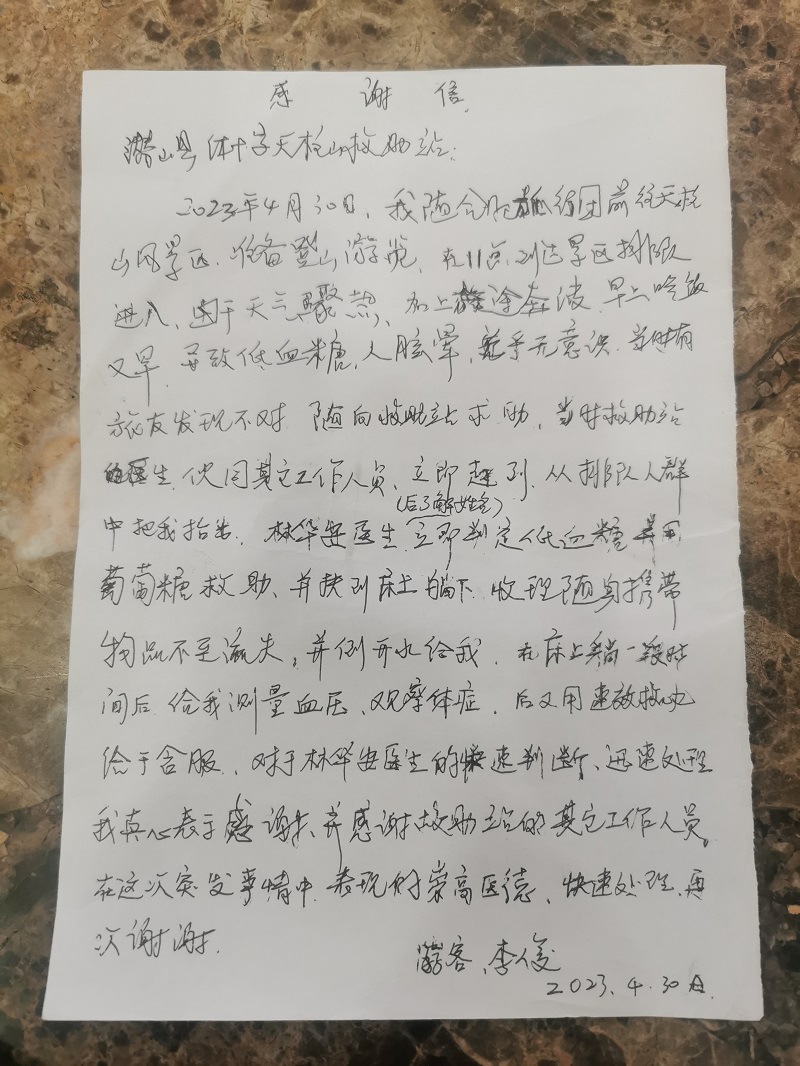 感谢信
潜山县红十字天柱山救助站：
2023年4月30日，我随合肥旅行团前往天柱
山风景区，准备登山游览，在11点到达景区排队
进入，由于天气骤热，加上旅途奔波，早上吃饭
又早，导致低血糖，人眩晕，几乎无意识，当时有
旅友发现不对，随向救助站求助，当时救助站
医生，伙同其它工作人员，立即赶到，从排队人群
中把我抬出，林华安医生(后了解姓名)立即判定低血糖并用
葡萄糖救助，并扶到床上躺下，收理随身携带
物品不至流失，并倒开水给我，在床上躺一段时
间后，给我测量血压，观察体症，后又用速效救心丸
给于含服，对于林华安医生的快速判断、迅速处理
我真心表示感谢，并感谢救助站的其它工作人员。
在这次突发事情中，表现的崇高医德，快速处理，再
次谢谢。
游客：李俊
2023.4.30日.